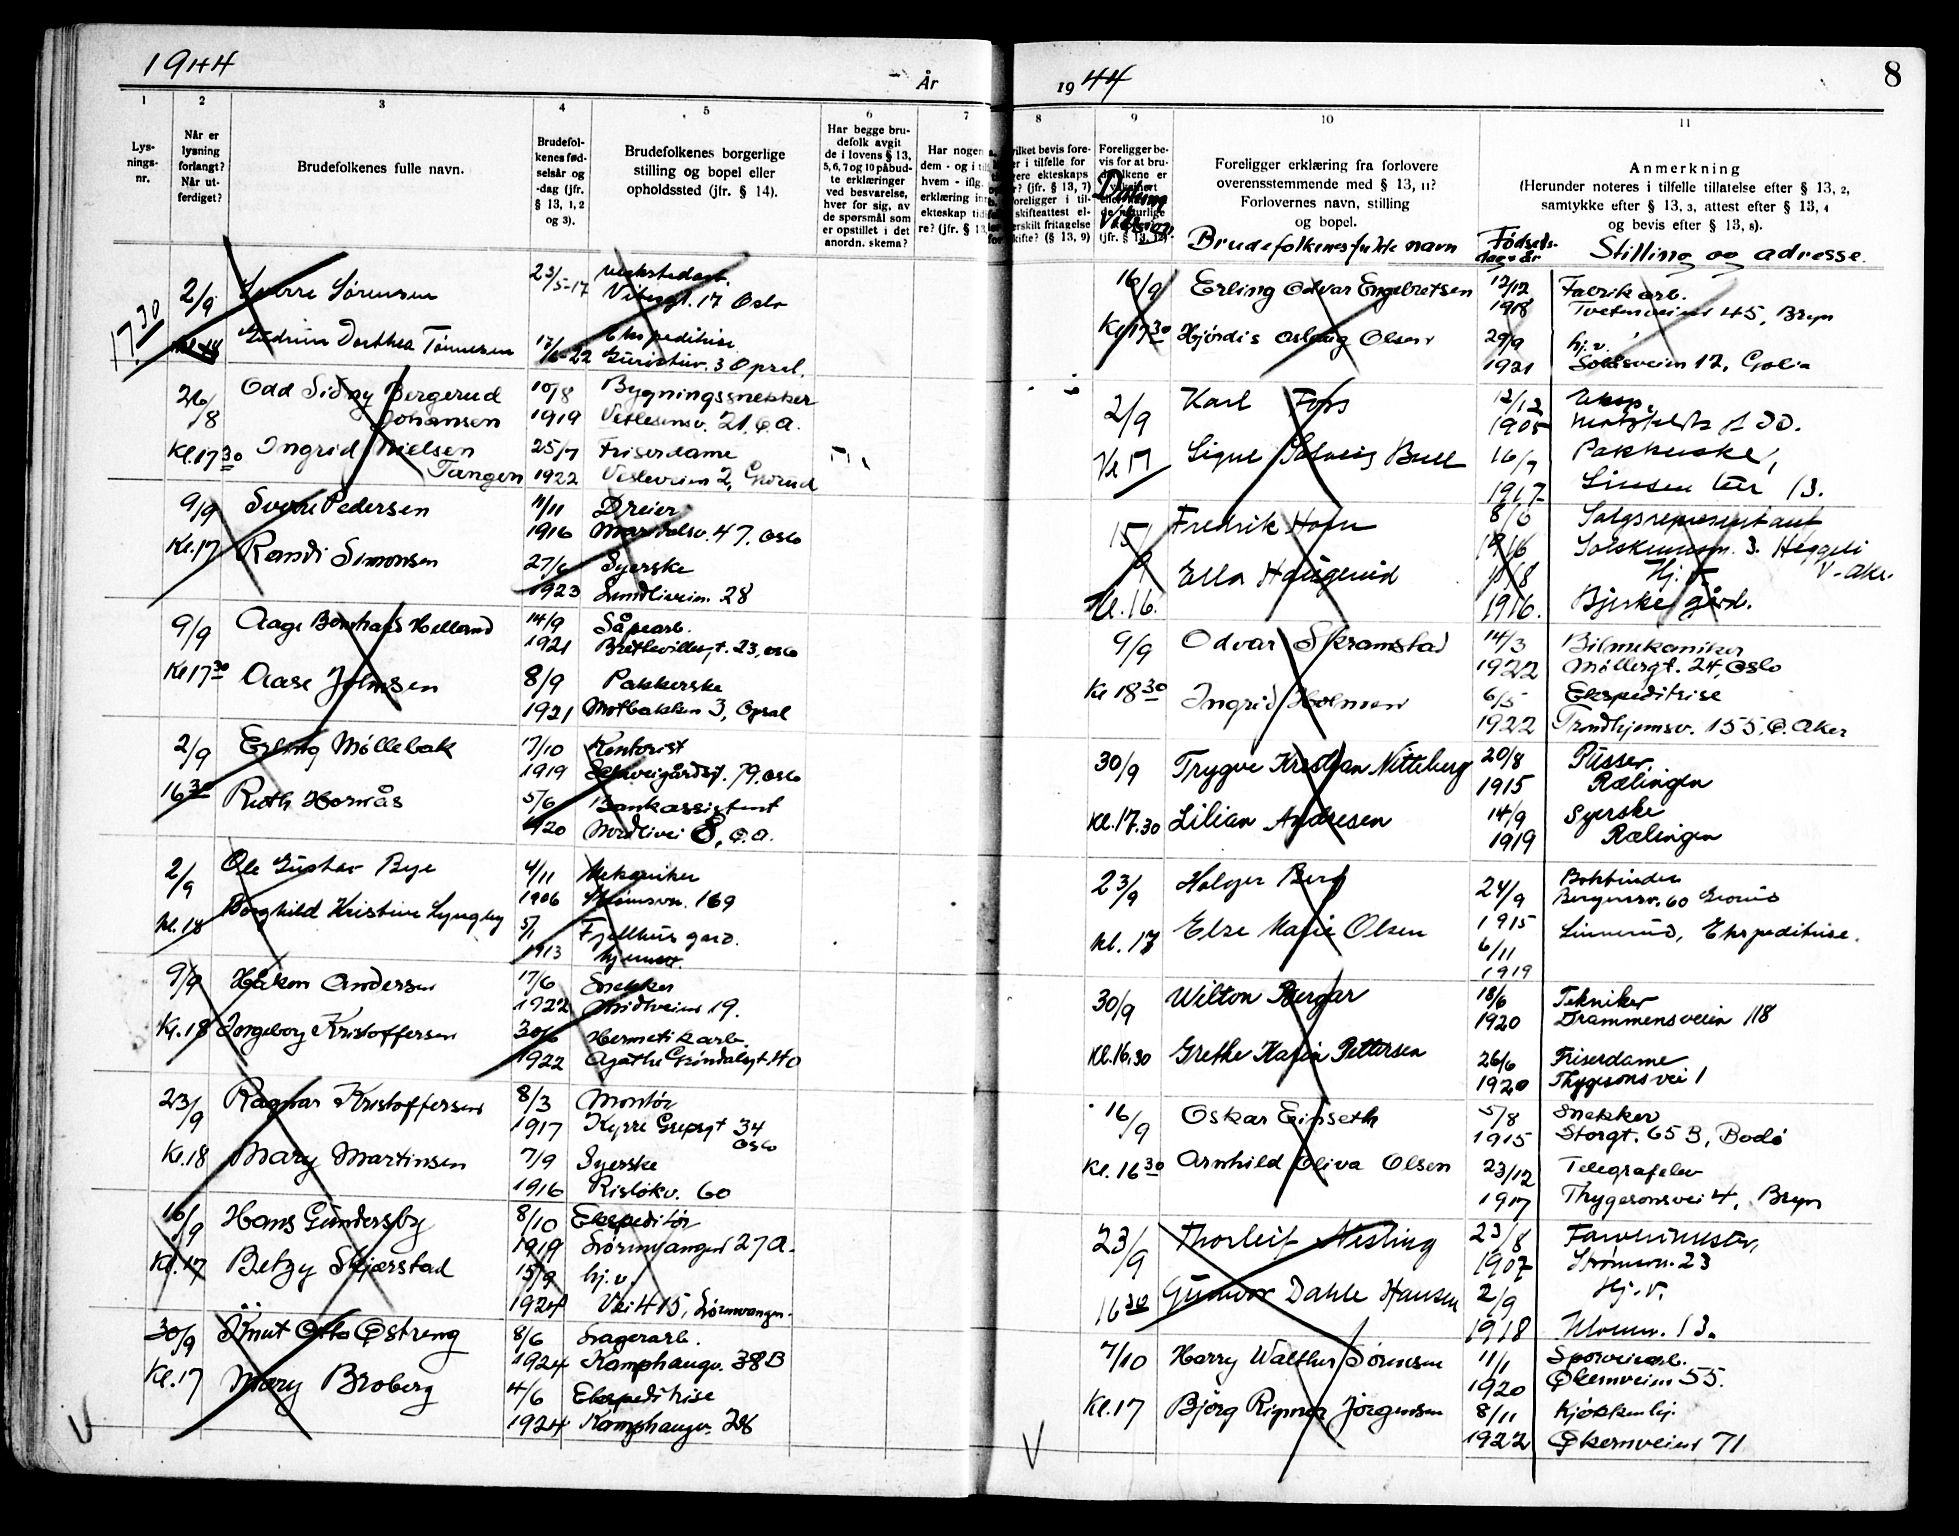 1944
År
1
2
3
4
5
6
7
Lys-
nings-
nr.
Når er
lysning
forlangt?
Når ut-
ferdiget?
Brudefolkenes fulle navn.
Brudefol-
kenes fød-
selsår og
-dag (jfr.
§ 13, 1, 2
og 3).
Brudefolkenes borgerlige
stilling og bopel eller
opholdssted (jfr. § 14).
Har begge bru-
defolk avgit
de i lovens § 13,
5, 6, 7 og 10 påbud-
te erklæringer
ved besvarelse,
hver for sig, av
de spørsmål som
er opstillet i det
anordn. skema?
Har nogen
dem - og i
hvem - iflg.
erklæring
ekteskap
re? (jfr. § 13
2/9 Sverre Sørensen 23/5-17
Vibesgt. 17 Oslo
17 30
Gudrun Dorthea Tønnesen Ekspeditrise
3 Opsal.
26/8 Odd Sidny Bergerud 10/8 Bygningssnekker
Johansen 1919 21. Ø.A.
Kl. 17 30 Ingrid Nielsen 25/7 Friserdame
Tangen 1922 Vesleveien 2, Grorud
9/9 Sverre Pedersen 11/11 Dreier
1916 Maridalsv. 47. Oslo
Kl. 17 Randi Simonsen 27/6 Syerske
1923 Lundliveien 28
9/9 Aage Hellerud 14/9 Såpearb.
1921 23, Oslo
Kl 17 30 Aase Johnsen 8/9 Pakkerske
1921 Motbakken 3, Opsal
2/9 Erling Møllebak 17/10 Kontorist
1919 Schweigårdsgt. 79. Oslo
16 30 Ruth Hornås 5/6 Bankassistent
1920 Nordlivei 8, Ø.A.
2/9 Ole Gustav Bye 4/11 Mekaniker
1906 Strømsvn. 169
Kl. 18 Borghild Kristine Lyngby 5/1 Fjellhus gård.
1913
9/9 Håkon Andersen 17/6 Snekker
1922 Midtveien 19.
Kl. 18 Ingeborg Kristoffersen 30/6 Hermetikarb.
1922 Agathe Grøndalsgt. 40
23/9 Ragnar Kristoffersen 8/3 Montør
1917 Kyrre Grepsgt 34
Oslo
Kl. 18 Mary Martinsen 7/9 Syerske
1916 Risløkv. 60
16/9 Hans Gundersby 8/10 Ekspeditør
1919 27 A.
Kl. 17 Betzy Skjærstad 15/9 hj.v.
1924 Vei 415,
30/9 Knut Otto Østreng 8/6 Lagerarb.
1924 Kamphaugv. 38B
Kl. 17 Mary Broberg 4/6 Ekspeditrise
1924 Kamphaugv. 28
V
1944
8
8
9
10
11
Foreligger be-
vis for at bru-
Foreligger erklæring fra forlovere
overensstemmende med § 13, 11?
Forlovernes navn, stilling
og bopel.
Anmerkning
(Herunder noteres i tilfelle tillatelse efter § 13, 2,
samtykke efter § 13, 3, attest efter § 13, 4
og bevis efter § 13, 8).
Dato og
Brudefolkenes fulde navn
Fødsels-
dag og år
Stilling og adresse.
16/9 Erling Odvar Engebretsen 12/12 Fabrikarb.
1918 Tvetenveien 45, Bryn
Kl 17 30 Hjørdis Aslaug Olsen 29/9 hj.v.
1921 12, Golia
2/9 Karl Foss 12/12 Eksp.
1905
Kl 17 Signe Solveig Bull 16/7 Pakkerske,
1917 13.
15/9 Fredrik Horn 8/6 Salgsrepresentant
1916 3. Heggeli
V-Aker
Ella Haugerud 11/8 Hj.v.
Kl. 16. 1916. Bjerke gård.
9/9 Odvar Skramstad 14/3 Bilmekaniker
1922 Møllergt. 24, Oslo
Kl 18 30 Ingrid Holmen 6/5 Ekspeditrise
1922 Trondhjemsv. 155. Ø. Aker
30/9 Trygve Kristian Nitteberg 20/8 Pusser
1915 Rælingen
Kl. 17.30 Lilian Andresen 14/9 Syerske
1919 Rælingen
23/9 Holger Berg 24/9 Bokbinder
Bergensv. 60 Grorud
1915
Kl. 17 Else Marie Olsen 6/11 Linnerud, Ekspeditrise.
1919
30/9 Wilton Bergar 18/6 Tekniker
1920 Drammensveien 118
Kl. 16.30 Grethe Karin Pettersen 26/6 Friserdame
1920 Thygesons vei 1
16/9 Oskar Einseth 5/8 Snekker
1915 Storgt. 65 B, Bodø
Kl. 16 30 Arnhild Oliva Olsen 23/12 Telegrafelev
1917 Thygesonsvei 4, Bryn
23/9 Thorleif Nesling 23/8
1907 Strømsvn. 23
16 30 Gunvor Dahle Hansen 2/9 Hj.v.
1918 13.
7/10 Harry Walther Sørensen 11/1 Sporveisarb.
1920 Økernveien 55.
Kl. 17 Bjørg Rigmor Jørgensen 8/11 Kjøkkenhj.
1922 Økernveien 71
V